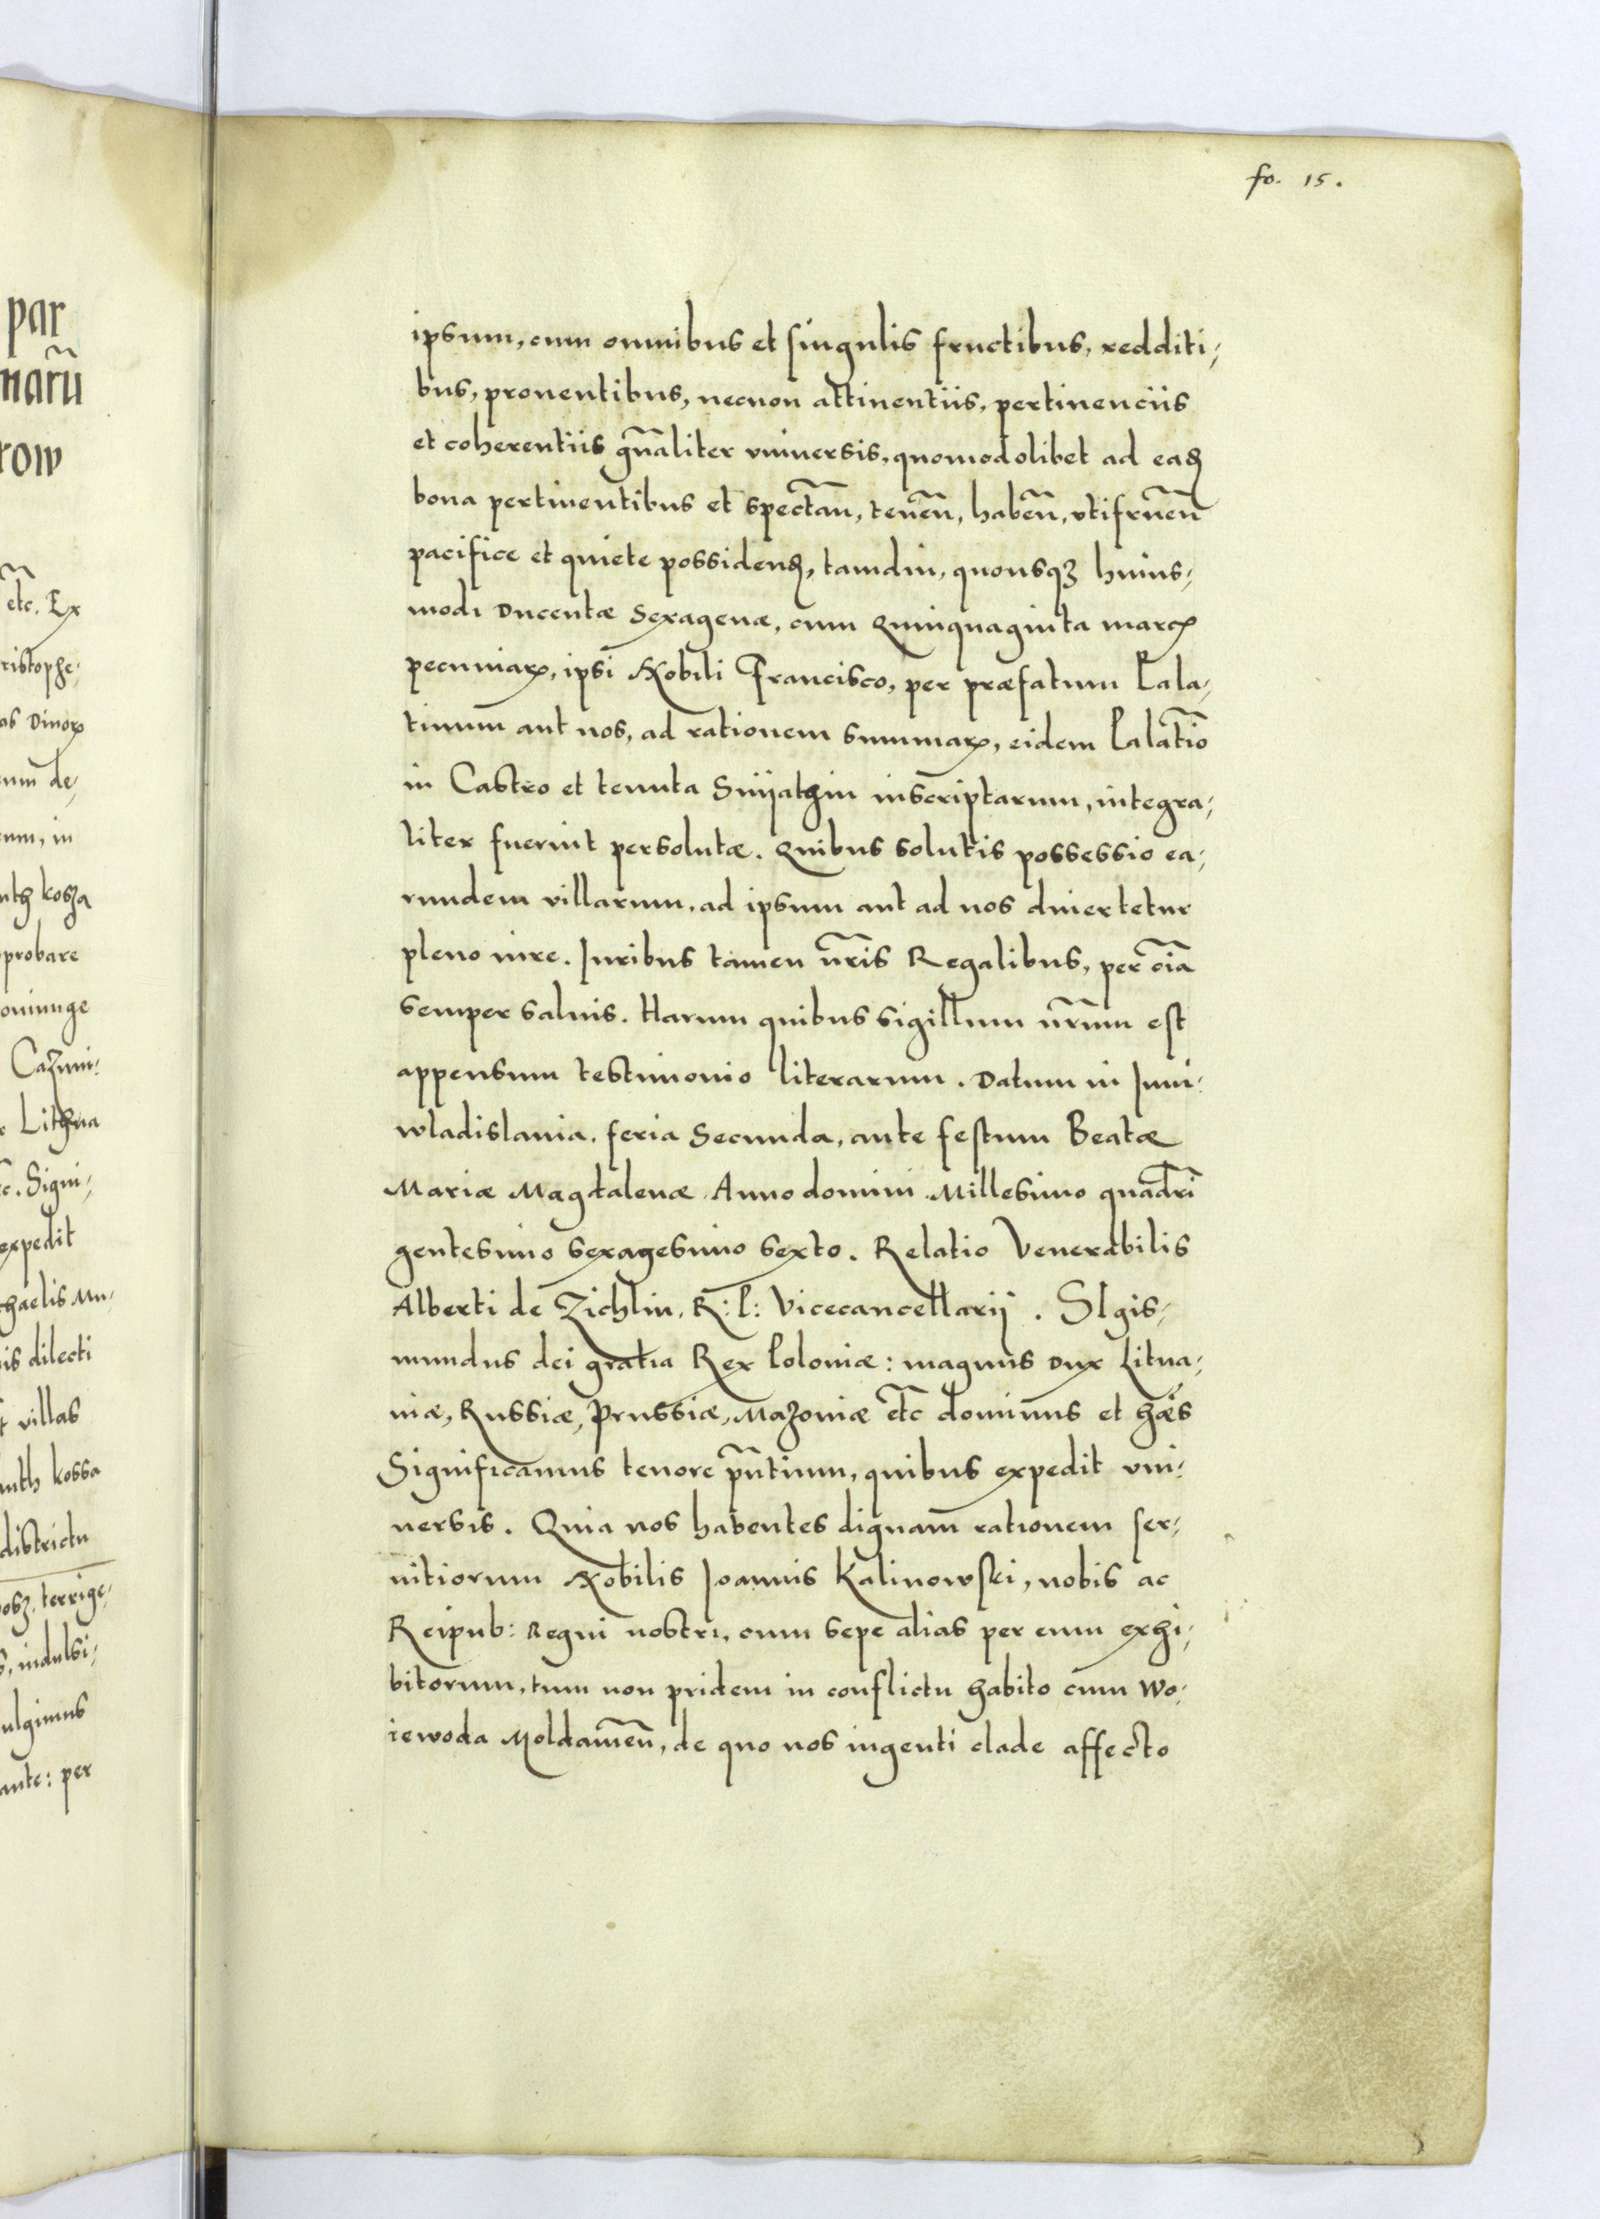 fo. 15.
ipsum, cum omnibus et singulis fructibus, redditi-
bus, prouentibus, necnon attinentiis, pertinenciis
et coherentiis gn̄aliter vniuersis, quomodolibet ad eaꝝ
bona pertinentibus et spectan̄, tenen̄, haben̄, vtifruen̄
pacifice et quiete possidenꝝ, tamdiu, quousqꝫ huius-
modi Ducentæ Sexagenæ, cum Quinquaginta marcꝭ
pecuniaꝝ, ipsi Nobili Francisco, per præfatum Pala-
tinum aut nos, ad rationem summaꝝ, eidem Palatīo
in Castro et tenuta Sniiathin inscriptarum, integra-
liter fuerint persolutæ. Quibus solutis possessio ea-
rundem villarum, ad ipsum aut ad nos diuertetur
pleno iure. Iuribus tamen nr̄is Regalibus, per oīa
semper saluis. Harum quibus sigillum nr̄um est
appensum testimonio literarum. Datum in Iuni-
wladislauia. feria Secunda, ante festum Beatæ
Mariæ Magdalenæ Anno domini Millesimo quadri
gentesimo sexagesimo sexto. Relatio Venerabilis
Alberti de Zichlin. R: P: Vicecancellarij. SIgis-
mundus dei gratia Rex Poloniæ: magnus Dux Litua-
niæ, Russiæ, Prussiæ, Mazouiæ etc̄ dominus et hæ̃s
Significamus tenore pn̄tium, quibus expedit vni-
uersis. Quia nos habentes dignam rationem ser-
uitiorum Nobilis Ioannis Kalinowski, nobis ac
Reipub: Regni nostri, cum sepe alias per eum exhi-
bitorum, tum non pridem in conflictu habito cum Wo-
iewoda Moldauien̄, de quo nos ingenti clade affecto